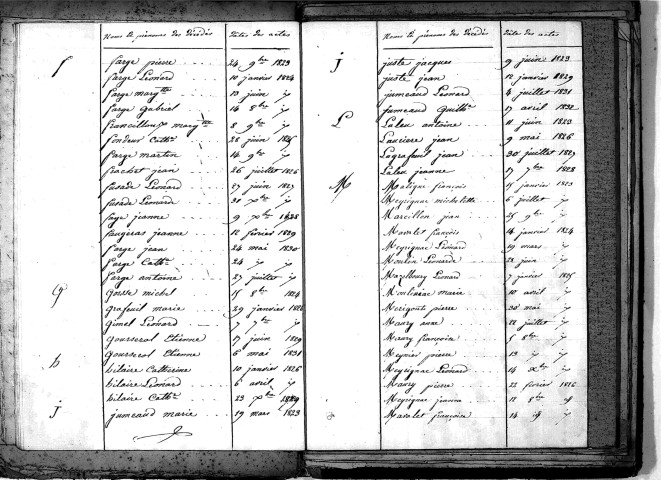 Noms et prénoms des décédés Dates des actes
f farge pierre 24 9bre 1823
farge Léonard 10 janvier 1824
farge margtte 13 juin
farge Gabriel 14 8bre
francillout margtte 8 9bre
fondeur Cathne 26 juin 1825
farge martin 14 9bre
frachet jean 26 juillet 1826
fusade Léonard 27 juin
fusade Léonard 31 xbre
faye jeanne 9 xbre 1828
faugeras jeanne 12 février 1829
farge jean 24 mai 1830
farge Cathne 24
farge antoine 27 juillet
G Gosse michel 15 8bre 1824
Grafeuil marie 29 janvier
Gimel Léonard 7 7bre
Gousserol Etienne 17 juin 1829
Gousserol Etienne 6 mai 1831
h hilaire Catherine 10 janvier 1826
hilaire Léonard 6 avril
hilaire Cathne 23 xbre 1829
j jumeaud marie 19 mars 1823
Noms et prénoms des décédés Dates des actes
j juste jacques 9 juin 1823
juste jean 12 janvier 1829
jumeaud Léonard 4 juillet 1831
jumeaud Guilhe 9 avril 1832
L Laleu antoine 11 juin 1823
jean 9 mai 1826
Lagrafeuil jean 30 juillet 1827
Laleu jeanne 17 7bre 1828
M françois 15 janvier 1823
Meyrignac michelette 6 juillet
Marcillon jean 25 9bre
Mavalet françois 14 janvier 1824
Meyrignac Léonard 19 mars
Moulin Léonarde 21 juin
Mazelbourg Léonard 7 janvier 1825
Mouliniac marie 10 avril
pierre 30 mai
Maury anne 22 juillet
Maury françoise 5 8bre
Meynier pierre 13
Meyrignac Léonard 14 xbre
Maury pierre 22 février 1826
Meyrignac jeanne 12 8bre
Mavalet françoise 14